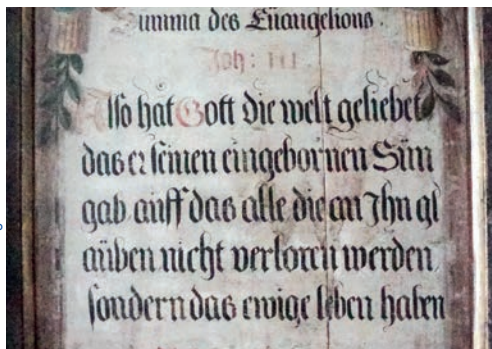 Summa des Eüangelions.
Joh: III
Also hat Gott die welt geliebet
das er seinen eingebornen Sün
gab auff das alle die an Ihn gl
aüben nicht verloren werden
sondern das ewige leben haben